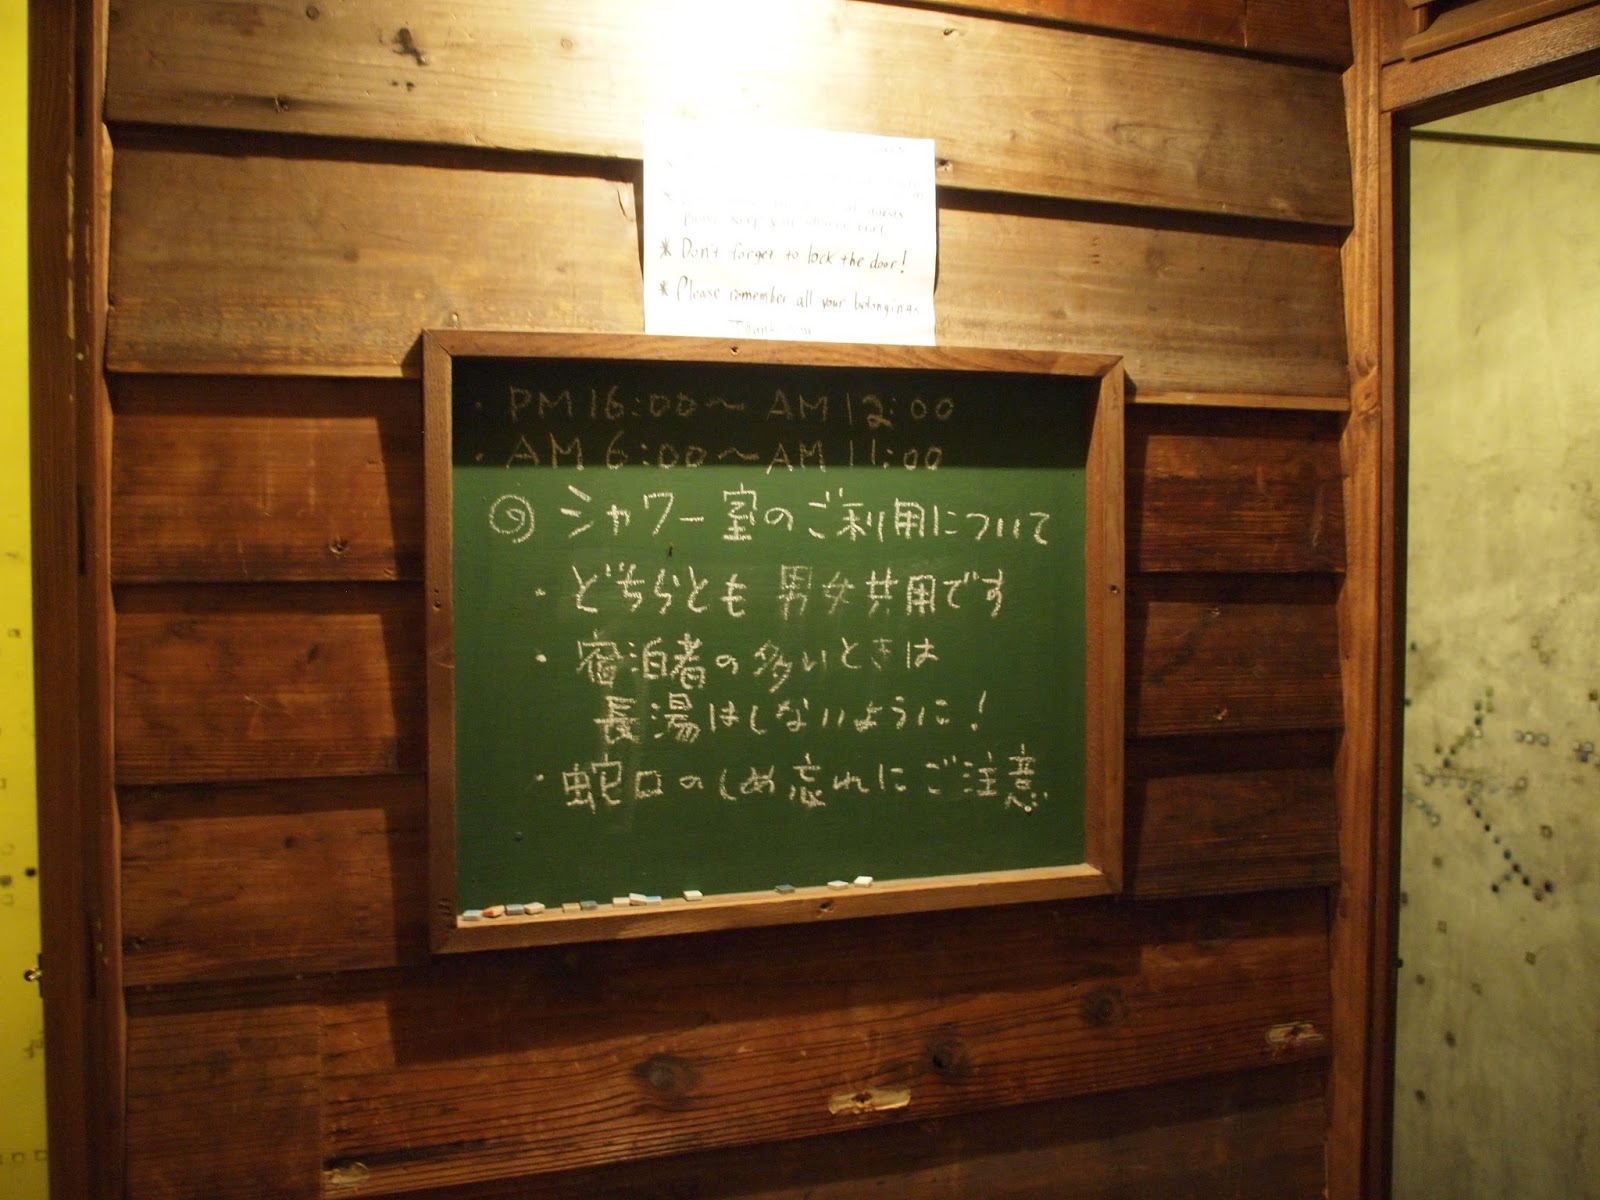 Please keep your shower
* Don't forget to lock the door!
* Please remember all your belongings
Thank you
・PM16:00〜AM12:00
・AM6:00〜AM11:00
◎シャワー室のご利用について
・どちらとも男女共用です
・宿泊者の多いときは
長湯はしないように!
・蛇口のしめ忘れにご注意